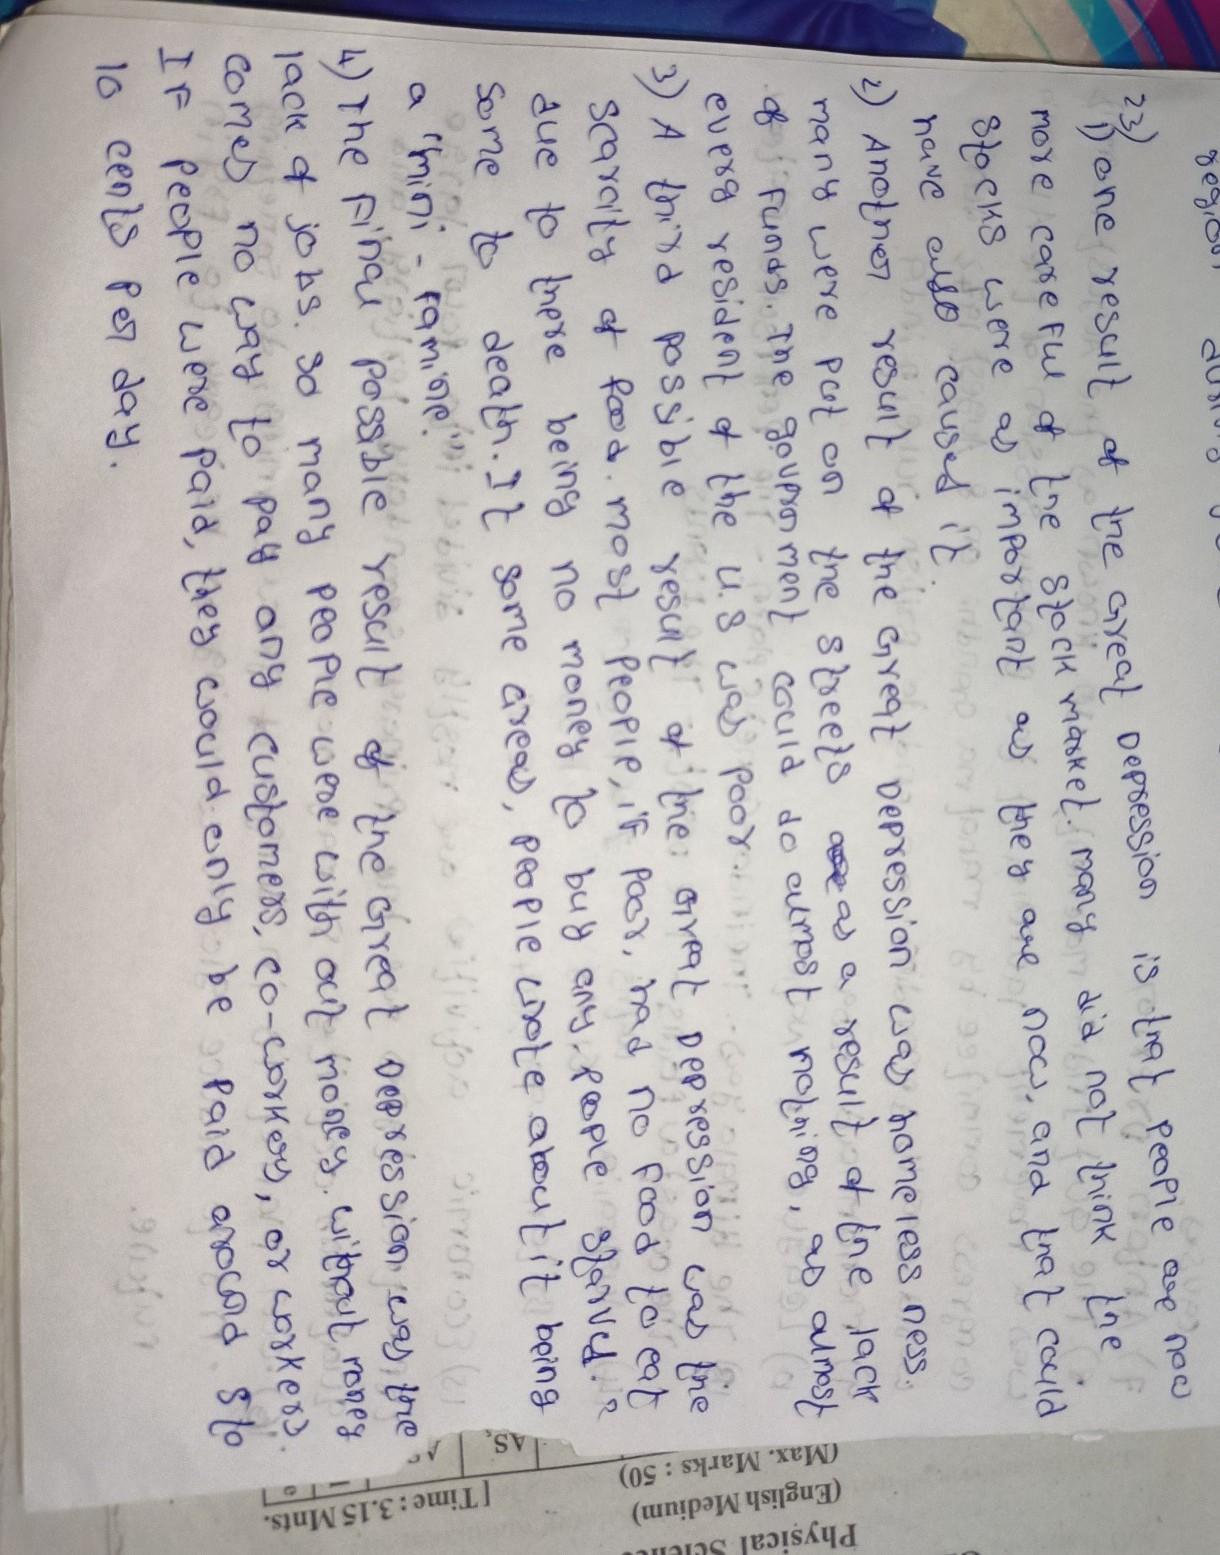 region during
23)
1) one result of the Great Depression is that people are now
more careful of the stock market. many did not think the
stocks were as important as they are now, and that could
have also caused it.
2) Another result of the Great Depression was homelessness.
many were put on the streets as a result of the lack
of funds. The government could do almost nothing, as almost
every resident of the U.S was poor.
3) A third possible result of the Great Depression was the
scarcity of food. most people, if poor, had no food to eat
due to there being no money to buy any. people starved.
some to death. It some areas, people wrote about it being
a "mini - famine".
4) The final possible result of the Great Depression was the
lack of jobs. so many people were with out money. without money
comes no way to pay any customers, co-workers, or workers.
IF people were paid, they would only be paid around 5 to
10 cents per day.
Physical Science
(English Medium)
(Max. Marks : 50)
[Time : 3.15 Mnts.
AS,